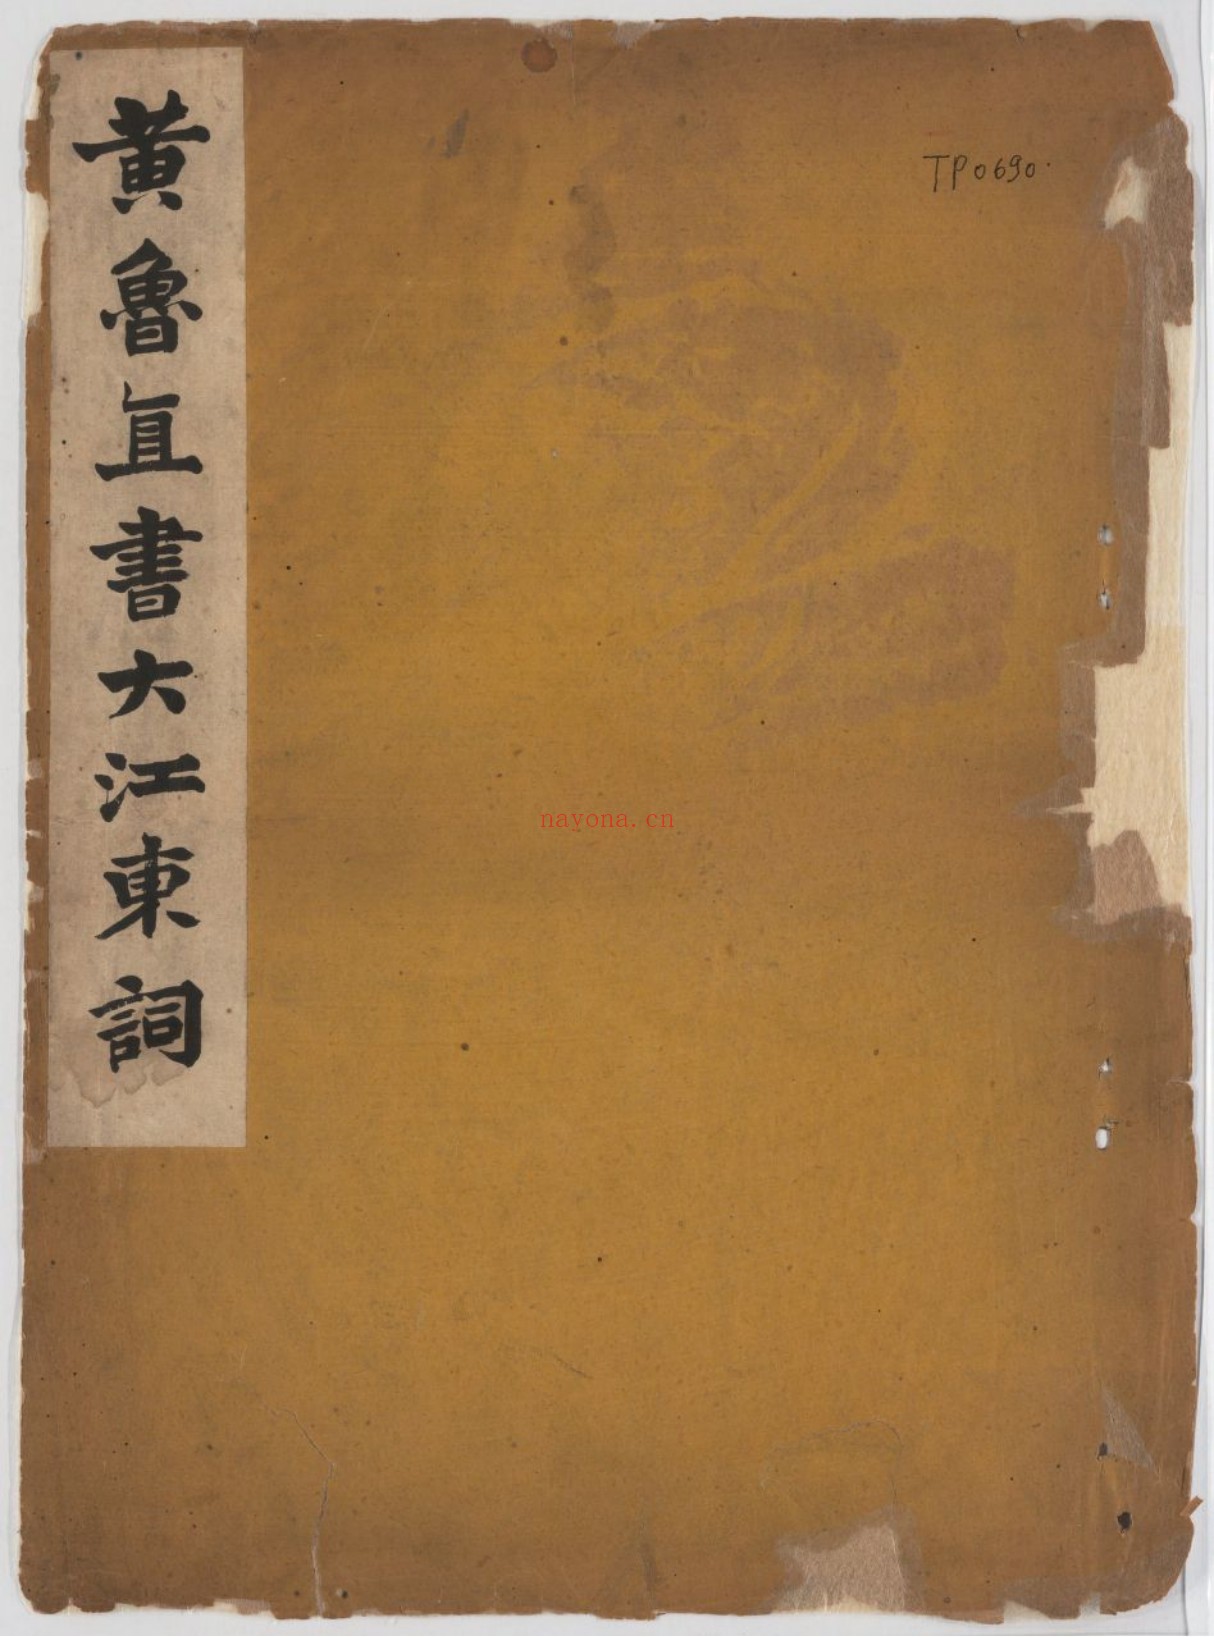 黄魯直書大江東詞
TP0690.
nayona.cn